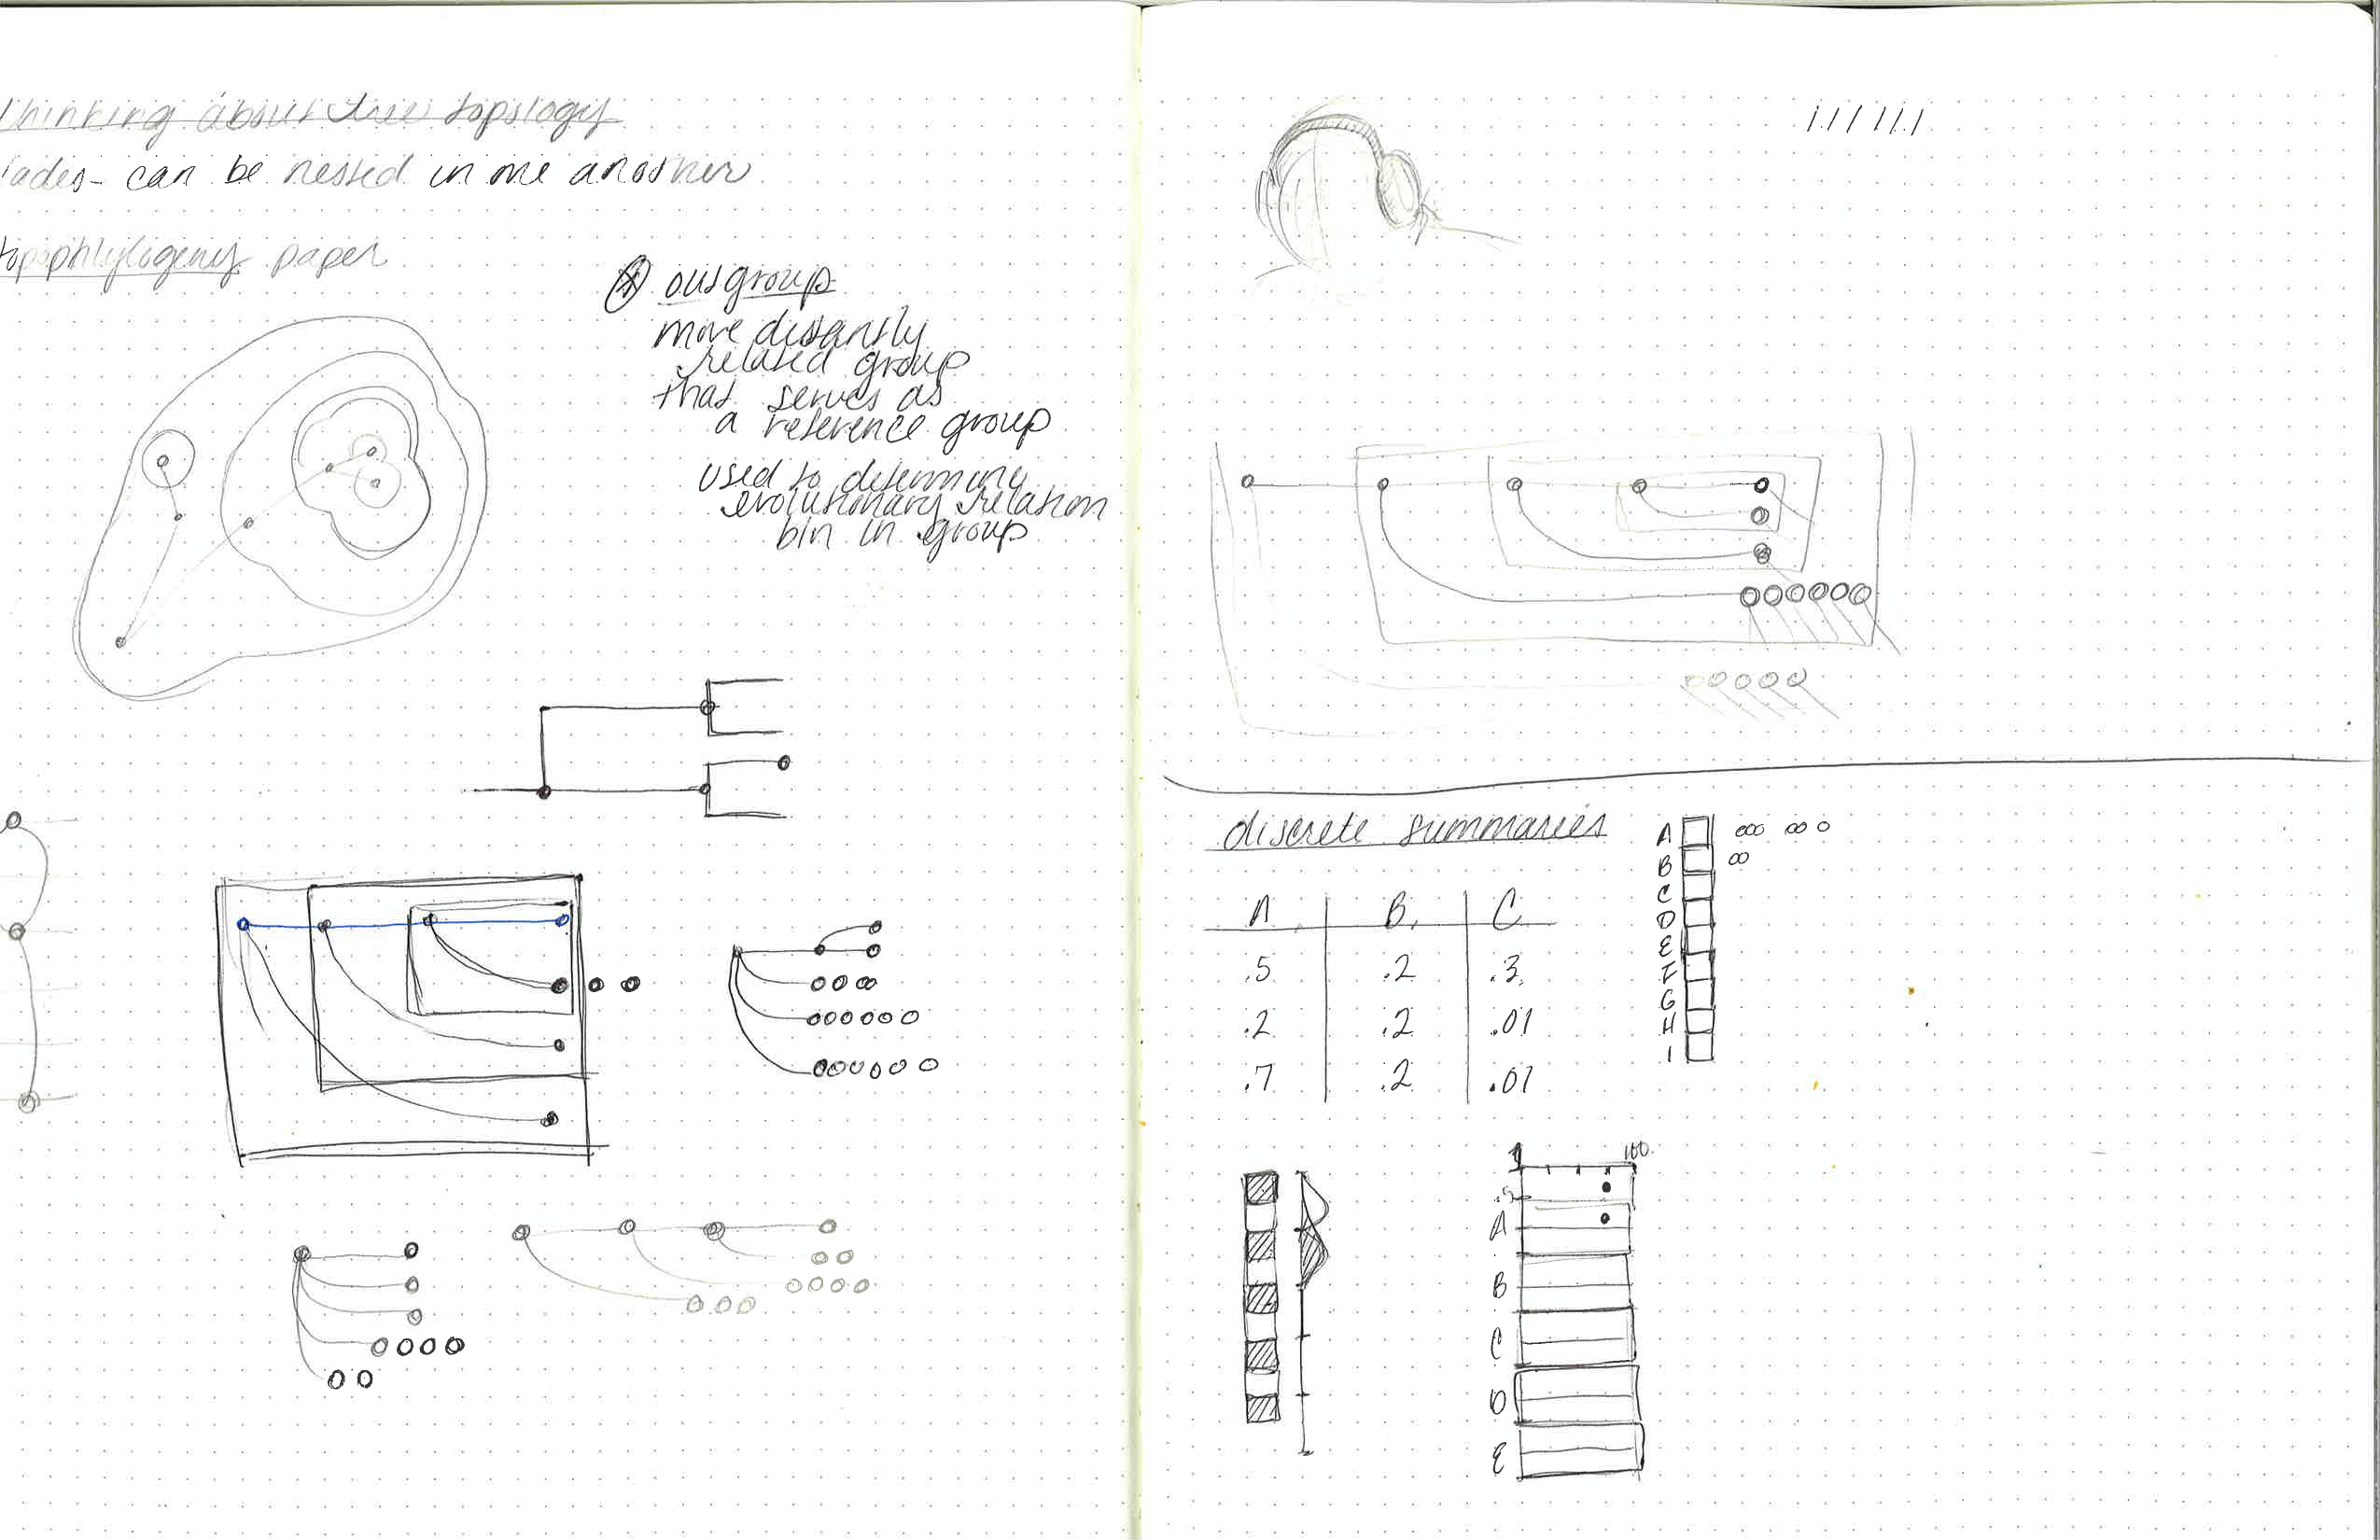 thinking about tree topology
lades - can be nested in one another
topophlylogeny paper
* outgroup
more distantly
related group
that serves as
a reference group
used to determine
evolutionary relation
btn in group
discrete summaries
A B C
.5 .2 .3
.2 .2 .01
.7 .2 .01
A
B
C
D
E
F
G
H
I
1 100
.5
A
B
C
D
E